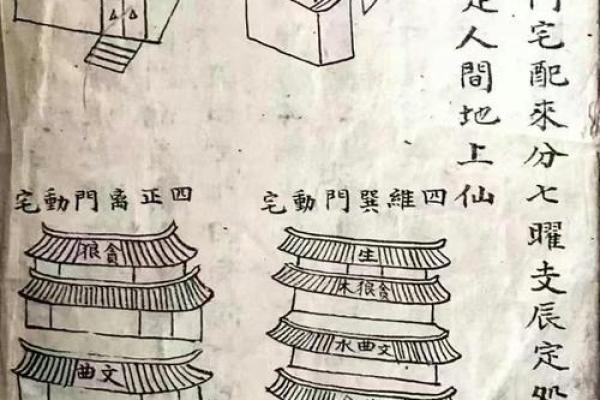 門宅配來分七曜支辰定
人間地上仙
四維巽門動宅
生
貪狼木
文曲水
四正离門動宅
貪狼
文曲